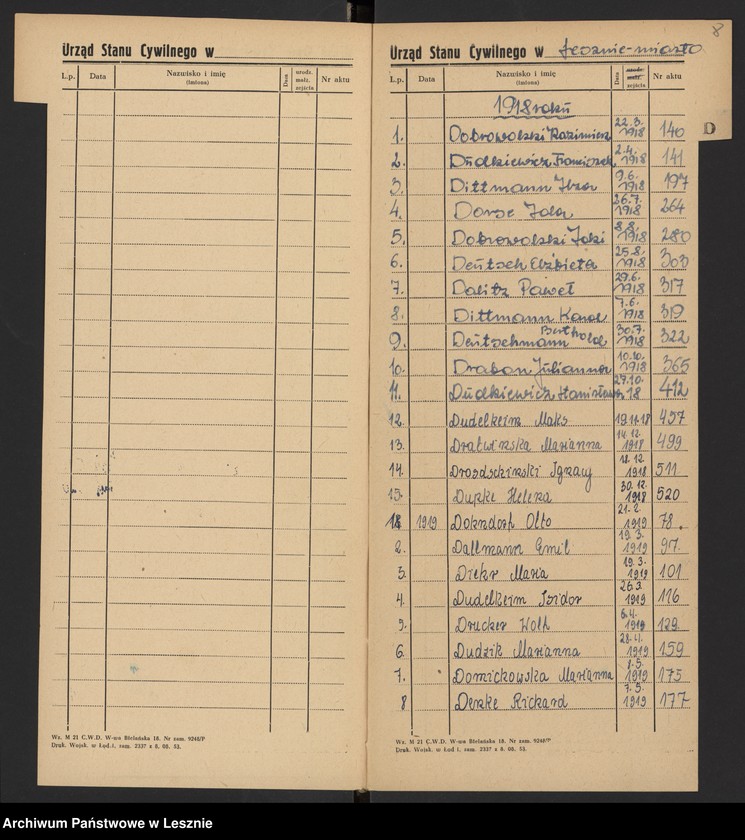 Urząd Stanu Cywilnego w
L.p. Data Nazwisko i imię (imiona) Data urodz. małż. zejścia Nr aktu
Wz. M 21 C.W.D. W-wa Bielańska 18. Nr zam. 9248/P
Druk. Wojsk. w Łodzi, zam. 2337 z 8. 08. 53.
8
Urząd Stanu Cywilnego w Lesznie-miasto
L.p. Data Nazwisko i imię (imiona) Data urodz. małż. zejścia Nr aktu
D
1918 roku
1. Dobrowolski Kazimierz 22.3. 1918 140
2. Dudkiewicz Franciszek 2.4. 1918 141
3. Dittmann 9.6. 1918 197
4. Dorse 26.7. 1918 264
5. Dobrowolski 8.8. 1918 280
6. Deutsch Elżbieta 25.8. 1918 303
7. Dalitz Paweł 29.6. 1918 317
8. Dittmann Karol 7.6. 1918 319
9. Deutschmann Berthold 30.7. 1918 322
10. Draban Julianna 10.10. 1918 365
11. Dudkiewicz Stanisław 27.10. 18 412
12. Dudelheim Maks 19.11.18 457
13. Dratwińska Marianna 14.12. 1918 499
14. Drozdschinski Ignacy 18.12. 1918 511
15. Dupke Helena 30.12. 1918 520
1 1919 Dohndorf Otto 21.2. 1919 78.
2. Dallmann Emil 19.3. 1919 97.
3. Diehr Maria 19.3. 1919 101
4. Dudelheim Isidor 26.3. 1919 116
5. Drucker 6.4. 1919 129
6. Dudzik Marianna 28.4. 1919 159
7. Domichowska Marianna 1.5. 1919 175
8 Denke Rickard 7.5. 1919 177
Wz. M 21 C.W.D. W-wa Bielańska 18. Nr zam. 9248/P
Druk. Wojsk. w Łodzi, zam. 2337 z 8. 08. 53.
Archiwum Państwowe w Lesznie